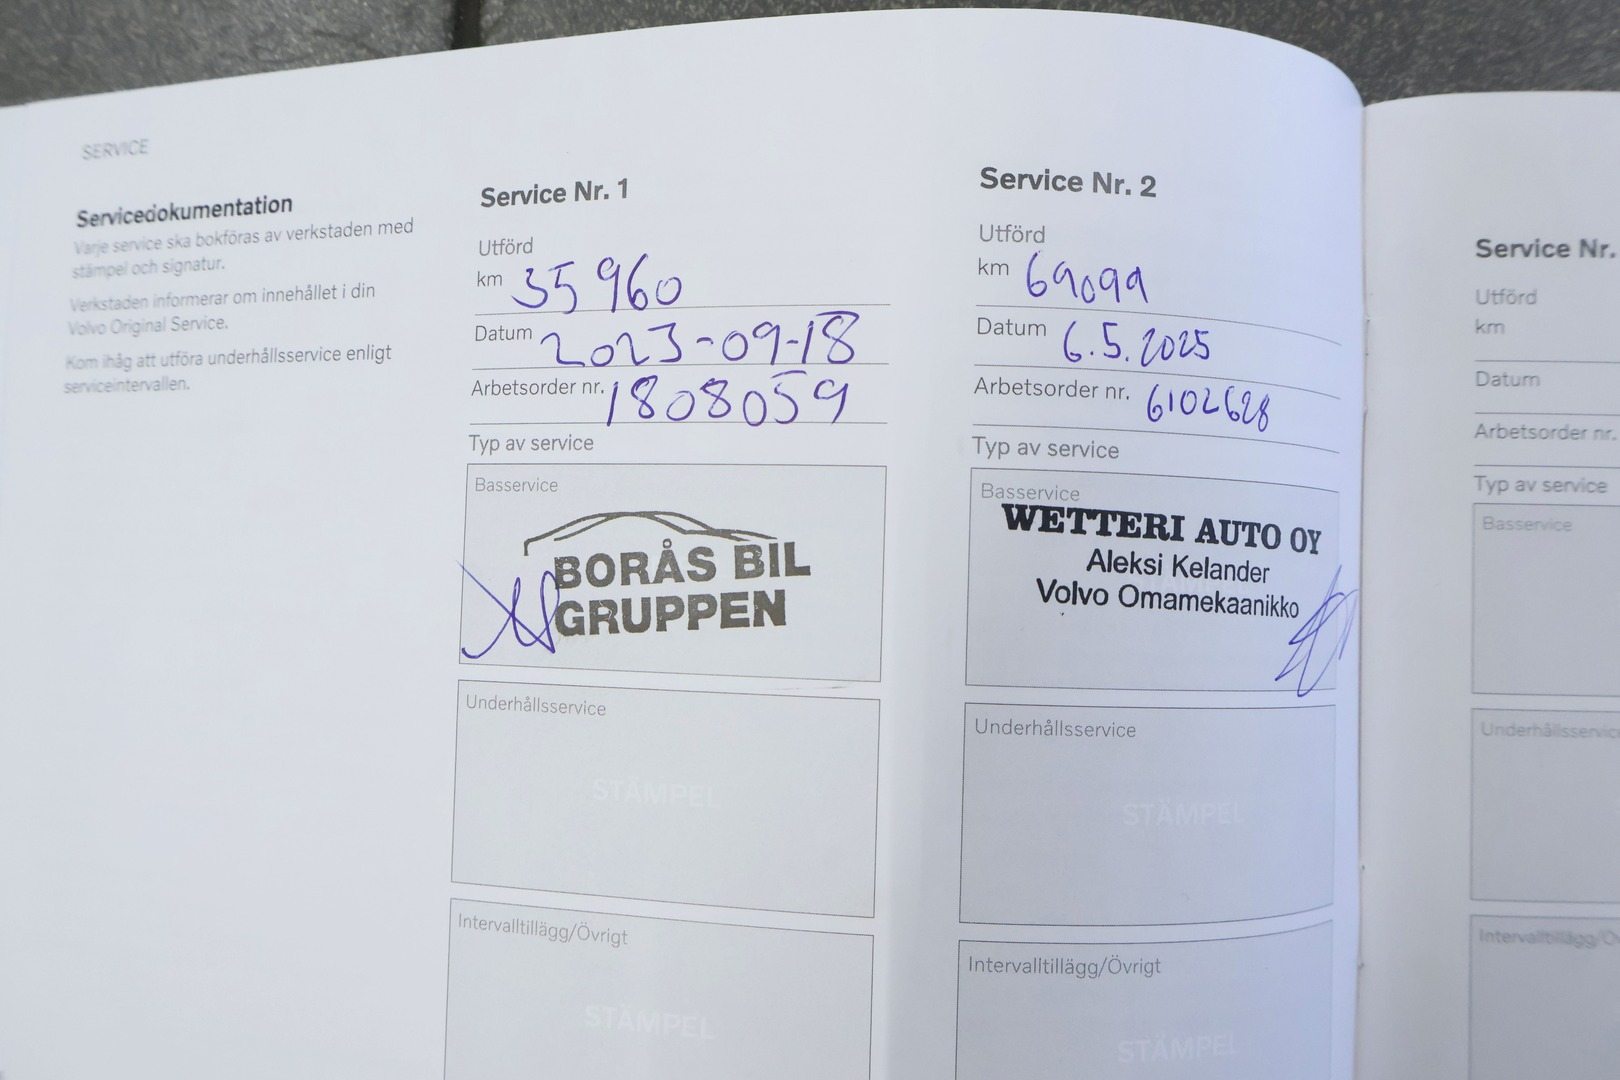 SERVICE
Servicedokumentation
Varje service ska bokföras av verkstaden med
stämpel och signatur.
Verkstaden informerar om innehållet i din
Volvo Original Service.
Kom ihåg att utföra underhållsservice enligt
serviceintervallen.
Service Nr. 1
Utförd
km 35960
Datum 2023-09-18
Arbetsorder nr. 1808059
Typ av service
Basservice
BORÅS BIL
GRUPPEN
Underhållsservice
STÄMPEL
Intervalltillägg/Övrigt
STÄMPEL
Service Nr. 2
Utförd
km 69099
Datum 6.5.2025
Arbetsorder nr. 6102628
Typ av service
Basservice
WETTERI AUTO OY
Aleksi Kelander
Volvo Omamekaanikko
Underhållsservice
STÄMPEL
Intervalltillägg/Övrigt
STÄMPEL
Service Nr.
Utförd
km
Datum
Arbetsorder nr.
Typ av service
Basservice
Underhållsservic
Intervalltillägg/Öv